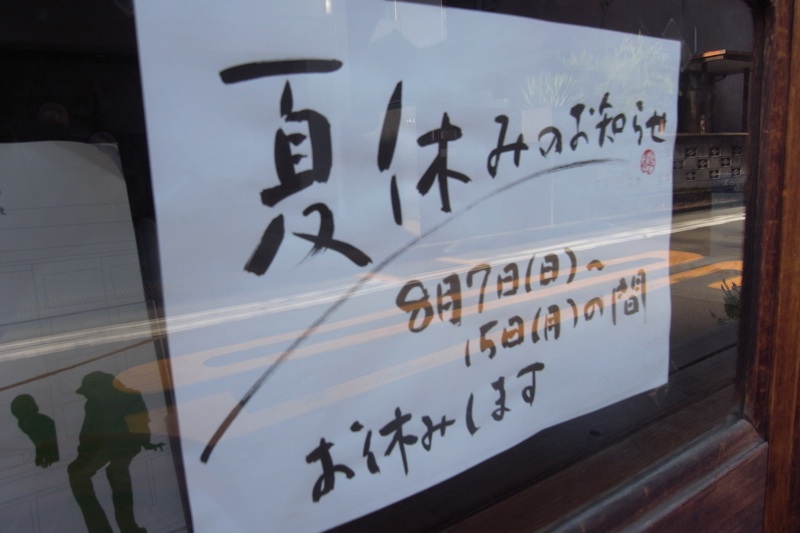 夏休みのお知らせ
8月7日(日)~
15日(月)の間
お休みします